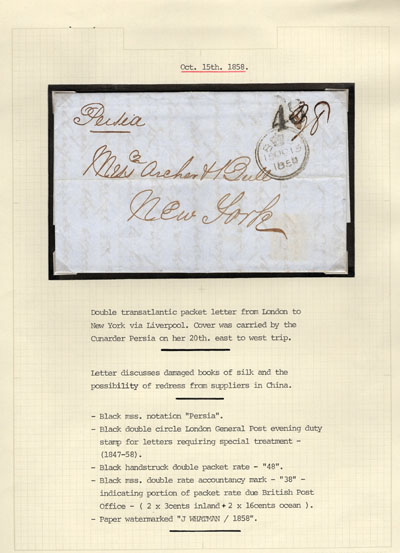 Oct. 15th. 1858.
48
38
Persia
1858
Messrs Archer & Bull
New York
Double transatlantic packet letter from London to
New York via Liverpool. Cover was carried by the
Cunarder Persia on her 20th. east to west trip.
Letter discusses damaged books of silk and the
possibility of redress from suppliers in China.
- Black mss. notation "Persia".
- Black double circle London General Post evening duty
stamp for letters requiring special treatment -
(1847-58).
- Black handstruck double packet rate - "48".
- Black mss. double rate accountancy mark - "38" -
indicating portion of packet rate due British Post
Office - ( 2 x 3cents inland + 2 x 16cents ocean ).
- Paper watermarked "J WHATMAN / 1858".